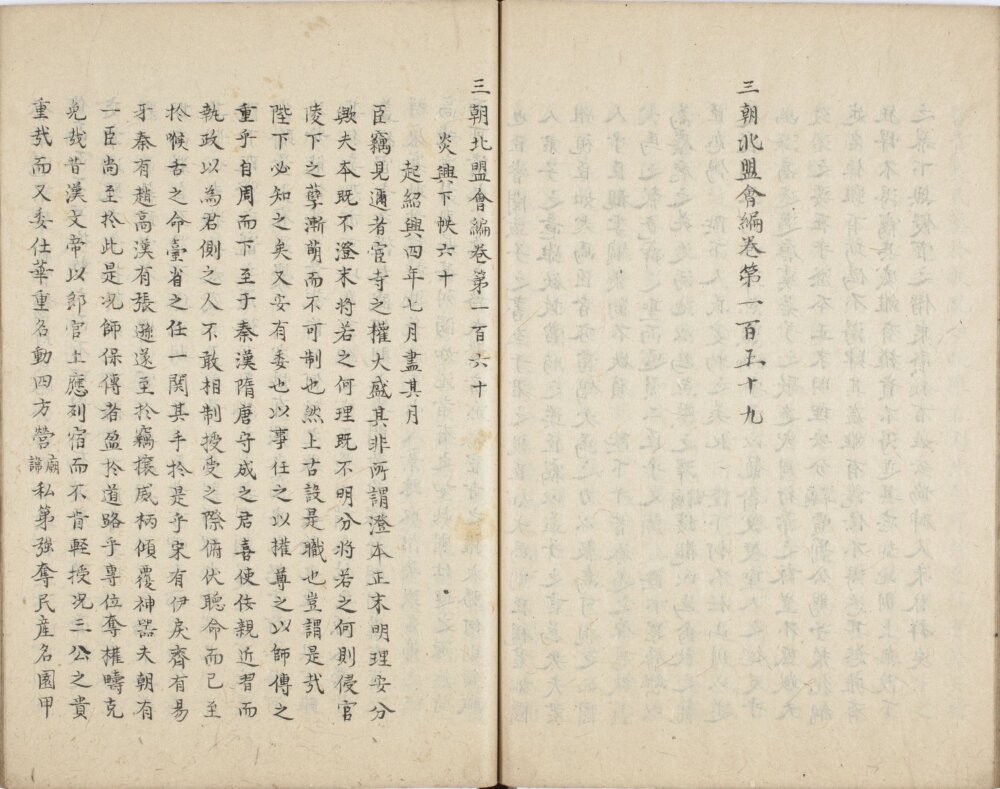 三朝北盟會編卷第一百五十九
三朝北盟會編卷第一百六十
炎興下帙六十
起紹興四年七月盡其月
臣竊見邇者宦寺之權則大盛其非所謂澄本正末明理安分
歟夫本既不澄末將若之何理既不明分將若之何則侵官
陵下之孽漸萌而不可制也然上古設是職也豈謂是㢤
陛下必知之矣又安有委也以事任之以權尊之以師傳之
重乎自周而下至于秦漢隋唐守成之君喜使佞親近習而
執政以為君側之人不敢相制授受之際俯伏聽命而已至
於喉舌之命臺省之任一関其手於是乎宋有伊戾齊有易
牙秦有趙高漢有張遜遂至於竊攘威柄傾覆神器夫朝有
一臣尚至於此是况師保傳者盈於道路乎專位奪權疇克
免㢤昔漢文帝以郎官上應列宿而不肯輕授况三公之貴
重㢤而又委仕華重名動四方營廟諦私第強奪民産名園甲